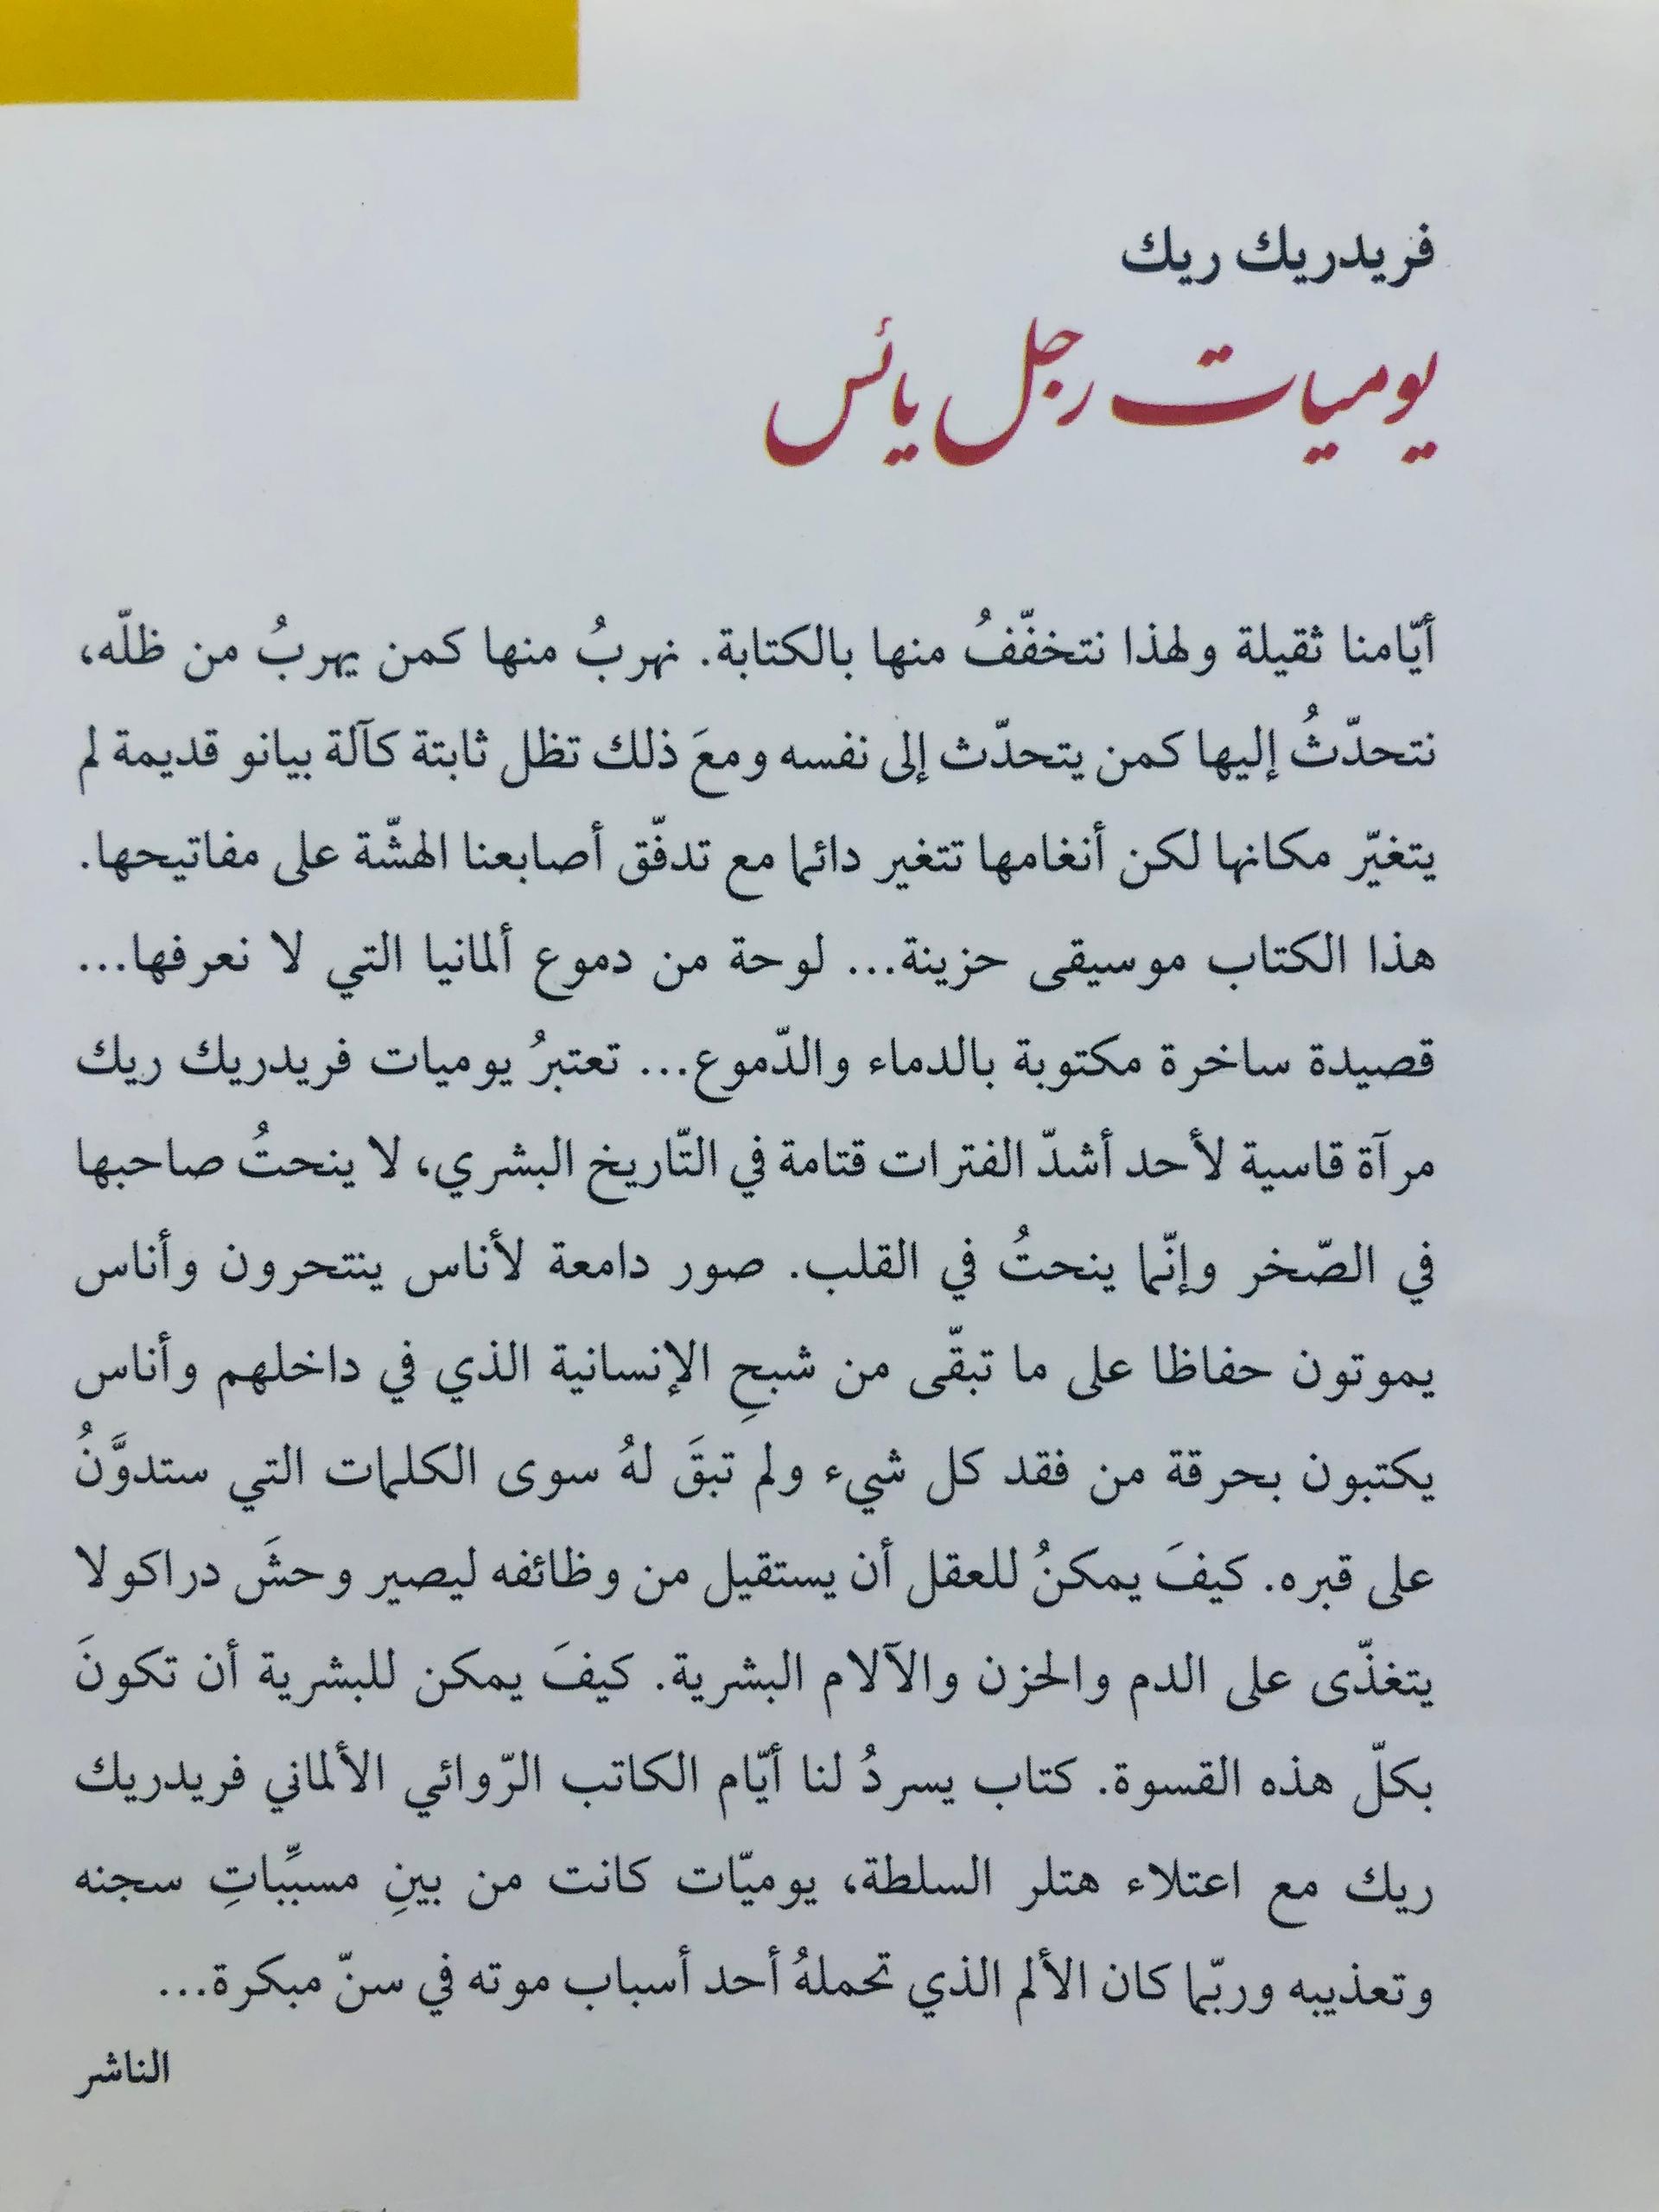 فريدريك ريك
يوميات رجل يائس
أيّامنا ثقيلة ولهذا نتخفّفُ منها بالكتابة. نهربُ منها كمن يهربُ من ظلّه،
نتحدّثُ إليها كمن يتحدّث إلى نفسه ومعَ ذلك تظل ثابتة كآلة بيانو قديمة لم
يتغيّر مكانها لكن أنغامها تتغير دائما مع تدفّق أصابعنا الهشّة على مفاتيحها.
هذا الكتاب موسيقى حزينة... لوحة من دموع ألمانيا التي لا نعرفها...
قصيدة ساخرة مكتوبة بالدماء والدّموع... تعتبرُ يوميات فريدريك ريك
مرآة قاسية لأحد أشدّ الفترات قتامة في التّاريخ البشري، لا ينحتُ صاحبها
في الصّخر وإنّما ينحتُ في القلب. صور دامعة لأناس ينتحرون وأناس
يموتون حفاظا على ما تبقّى من شبحِ الإنسانية الذي في داخلهم وأناس
يكتبون بحرقة من فقد كل شيء ولم تبقَ لهُ سوى الكلمات التي ستدوَّنُ
على قبره. كيفَ يمكنُ للعقل أن يستقيل من وظائفه ليصير وحشَ دراكولا
يتغذّى على الدم والحزن والآلام البشرية. كيفَ يمكن للبشرية أن تكونَ
بكلّ هذه القسوة. كتاب يسردُ لنا أيّام الكاتب الرّوائي الألماني فريدريك
ريك مع اعتلاء هتلر السلطة، يوميّات كانت من بينِ مسبِّباتِ سجنه
وتعذيبه وربّما كان الألم الذي تحملهُ أحد أسباب موته في سنّ مبكرة...
الناشر